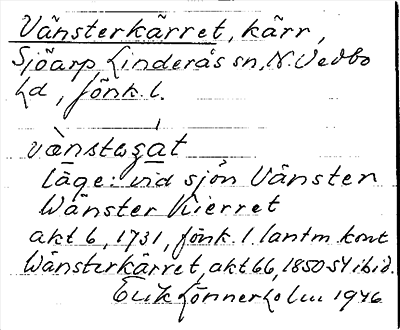 Vänsterkärret, kärr,
Sjöarp, Linderås sn, N. Vedbo
hd, Jönk. l.
Läge: vid sjön Vänster
Wänster Kierret
akt 6, 1731, Jönk. l. lantm. kont
Wänsterkärret, akt 66, 1850-54 ibid.
Erik Lönnerholm 1976